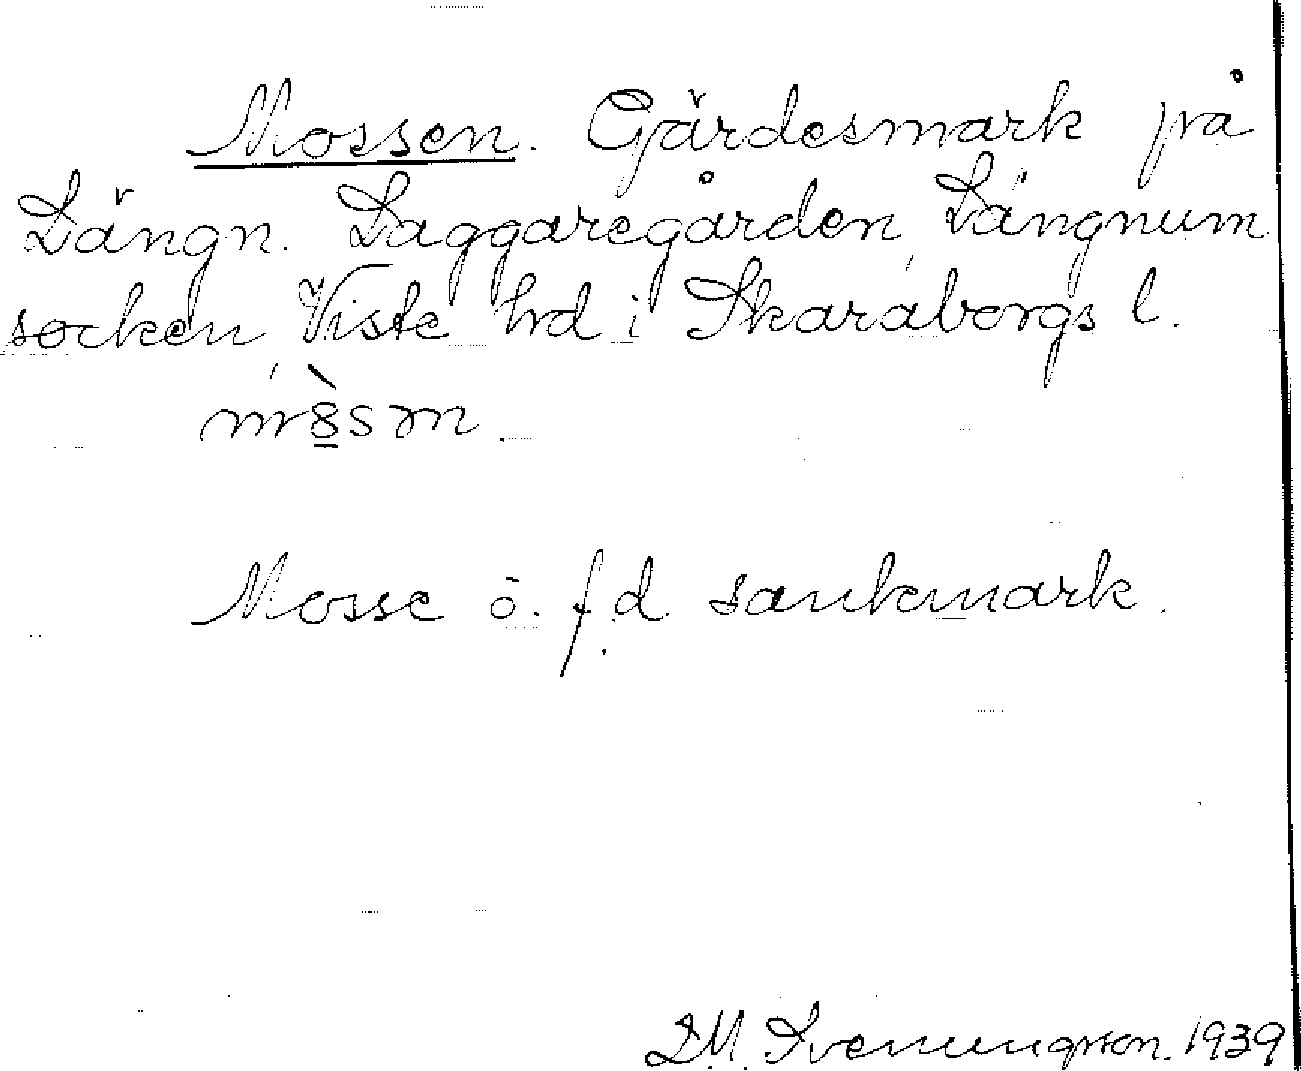 Mossen. Gärdesmark på
Längn. Laggaregården, Längnum
socken, Viste hrd i Skaraborgs l.
Mosse ö. f.d. sankmark.
D.M. Svenungsson. 1939